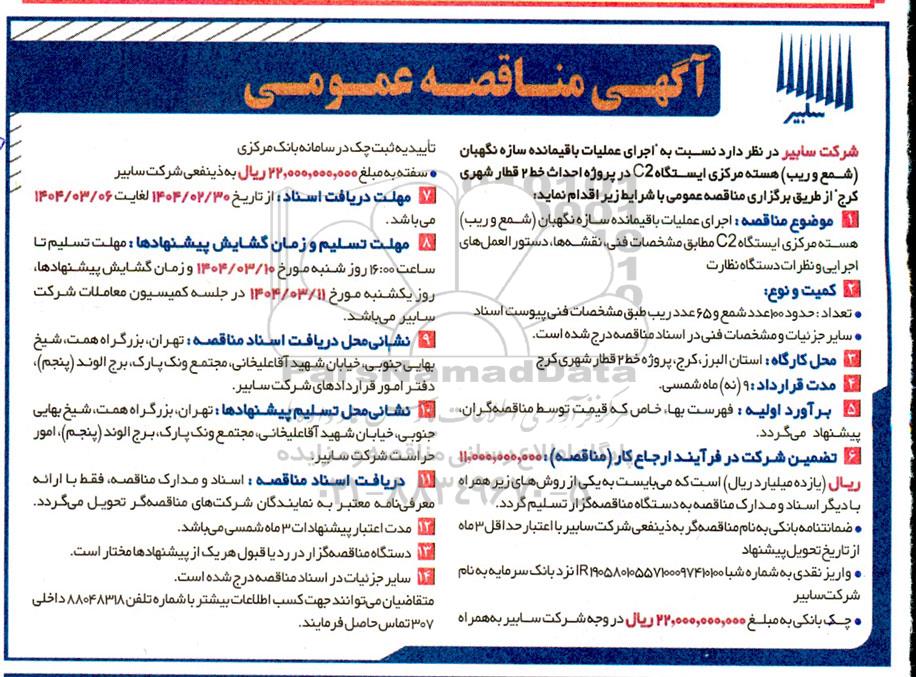 آگهی مناقصه عمومی
سابیر
شرکت سابیر در نظر دارد نسبت به "اجرای عملیات باقیمانده سازه نگهبان
(شمع و ریب) هسته مرکزی ایستگاه C2 در پروژه احداث خط ۲ قطار شهری
کرج" از طریق برگزاری مناقصه عمومی با شرایط زیر اقدام نماید:
۱ موضوع مناقصه: اجرای عملیات باقیمانده سازه نگهبان (شمع و ریب)
هسته مرکزی ایستگاه C2 مطابق مشخصات فنی، نقشه‌ها، دستور العمل‌های
اجرایی و نظرات دستگاه نظارت
۲ کمیت و نوع:
• تعداد: حدود ۱۰۰ عدد شمع و ۶۵ عدد ریب طبق مشخصات فنی پیوست اسناد
• سایر جزئیات و مشخصات فنی در اسناد مناقصه درج شده است.
۳ محل کارگاه: استان البرز، کرج، پروژه خط ۲ قطار شهری کرج
۴ مدت قرارداد: ۹ (نه) ماه شمسی.
۵ برآورد اولیه: فهرست بها، خاص که قیمت توسط مناقصه‌گران،
پیشنهاد می‌گردد.
۶ تضمین شرکت در فرآیند ارجاع کار (مناقصه): ۱۱,۰۰۰,۰۰۰,۰۰۰
ریال (یازده میلیارد ریال) است که می‌بایست به یکی از روش‌های زیر همراه
با دیگر اسناد و مدارک مناقصه به دستگاه مناقصه‌گزار تسلیم گردد.
• ضمانتنامه بانکی به نام مناقصه‌گر به ذینفعی شرکت سابیر با اعتبار حداقل ۳ ماه
از تاریخ تحویل پیشنهاد
• واریز نقدی به شماره شبا IR۱۹۰۵۸۰۱۰۵۵۷۱۰۰۰۹۷۴۱۰۱۰۰ نزد بانک سرمایه به نام
شرکت سابیر
• چک بانکی به مبلغ ۲۲,۰۰۰,۰۰۰,۰۰۰ ریال در وجه شرکت سابیر به همراه
تأییدیه ثبت چک در سامانه بانک مرکزی
• سفته به مبلغ ۲۲,۰۰۰,۰۰۰,۰۰۰ ریال به ذینفعی شرکت سابیر
۷ مهلت دریافت اسناد: از تاریخ ۱۴۰۴/۰۲/۳۰ لغایت ۱۴۰۴/۰۳/۰۶
می‌باشد.
۸ مهلت تسلیم و زمان گشایش پیشنهادها: مهلت تسلیم تا
ساعت ۱۶:۰۰ روز شنبه مورخ ۱۴۰۴/۰۳/۱۰ و زمان گشایش پیشنهادها،
روز یکشنبه مورخ ۱۴۰۴/۰۳/۱۱ در جلسه کمیسیون معاملات شرکت
سابیر می‌باشد.
۹ نشانی محل دریافت اسناد مناقصه: تهران، بزرگراه همت، شیخ
بهایی جنوبی، خیابان شهید آقاعلیخانی، مجتمع ونک پارک، برج الوند (پنجم)،
دفتر امور قراردادهای شرکت سابیر.
۱۰ نشانی محل تسلیم پیشنهادها: تهران، بزرگراه همت، شیخ بهایی
جنوبی، خیابان شهید آقاعلیخانی، مجتمع ونک پارک، برج الوند (پنجم)، امور
حراست شرکت سابیر.
۱۱ دریافت اسناد مناقصه: اسناد و مدارک مناقصه، فقط با ارائه
معرفی‌نامه معتبر به نمایندگان شرکت‌های مناقصه‌گر تحویل می‌گردد.
۱۲ مدت اعتبار پیشنهادات ۳ ماه شمسی می‌باشد.
۱۳ دستگاه مناقصه‌گزار در رد یا قبول هر یک از پیشنهادها مختار است.
۱۴ سایر جزئیات در اسناد مناقصه درج شده است.
متقاضیان می‌توانند جهت کسب اطلاعات بیشتر با شماره تلفن ۸۸۰۴۸۳۱۸ داخلی
۳۰۷ تماس حاصل فرمایند.
ParsNamadData
۰۲۱-۸۸۳۴۹۶۷۰-۵